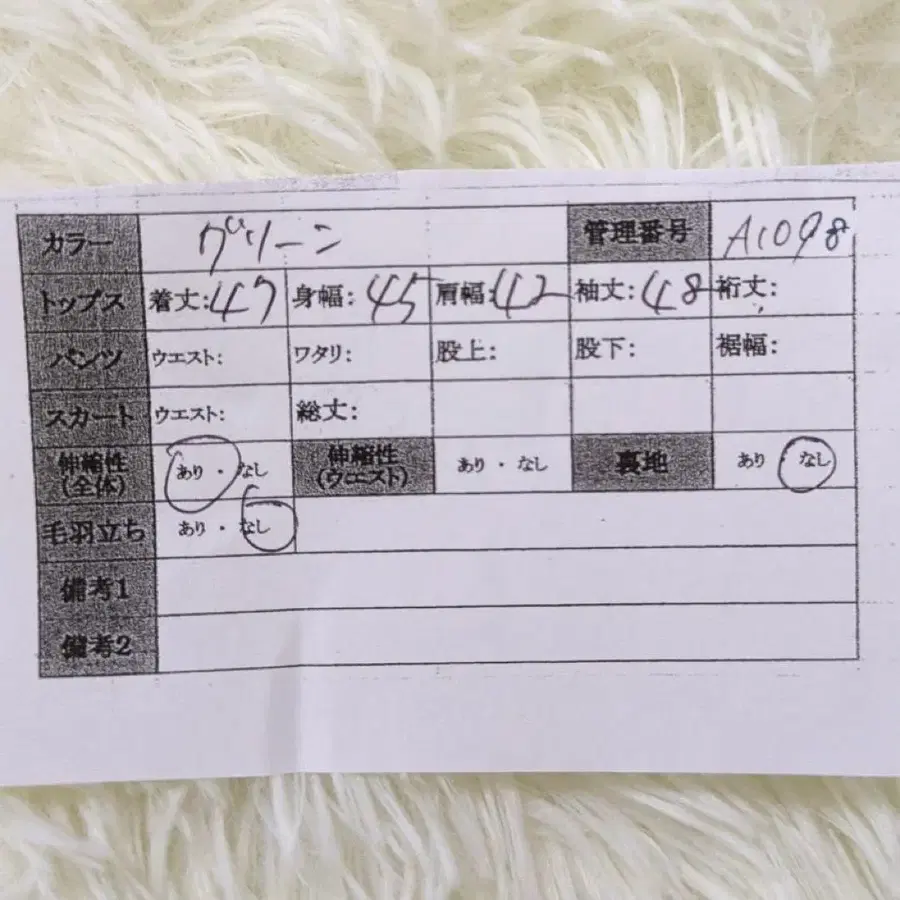 カラー グリーン 管理番号 A1098
トップス 着丈:47 身幅:45 肩幅:42 袖丈:48 裄丈:
パンツ ウエスト: ワタリ: 股上: 股下: 裾幅:
スカート ウエスト: 総丈:
伸縮性(全体) あり・なし 伸縮性(ウエスト) あり・なし 裏地 あり なし
毛羽立ち あり・なし
備考1
備考2